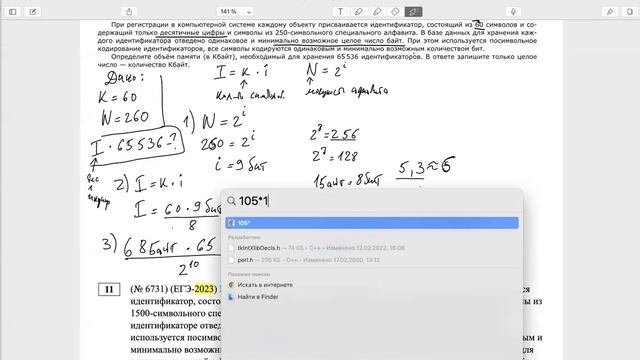 141 %
При регистрации в компьютерной системе каждому объекту присваивается идентификатор, состоящий из 60 символов и со-
держащий только десятичные цифры и символы из 250-символьного специального алфавита. В базе данных для хранения каж-
дого идентификатора отведено одинаковое и минимально возможное целое число байт. При этом используется посимвольное
кодирование идентификаторов, все символы кодируются одинаковым и минимально возможным количеством бит.
Определите объём памяти (в Кбайт), необходимый для хранения 65 536 идентификаторов. В ответе запишите только целое
число — количество Кбайт.
Дано:
I = K · i
N = 2^i
кол-во символов.
мощность алфавита
K = 60
N = 260
I · 65536 - ?
1) N = 2^i
260 = 2^i
i = 9 бит
2^8 = 256
2^7 = 128
1 байт = 8 бит
5,3 ≈ 6
2) I = K · i
I = 60 · 9 бит
8
3) 68 байт · 65
2^10
105*1
105*
Разработчик
tkIntXlibDecls.h — 74 КБ - C++ - Изменено 12.02.2022, 16:08
perl.h — 235 КБ - C++ - Изменено 17.02.2020, 13:12
Похожие поиски
Искать в интернете
Найти в Finder
11
(№ 6731) (ЕГЭ-2023)
идентификатор, состо
1500-символьного спец
идентификатора отвед
используется посимвол
минимально возможны